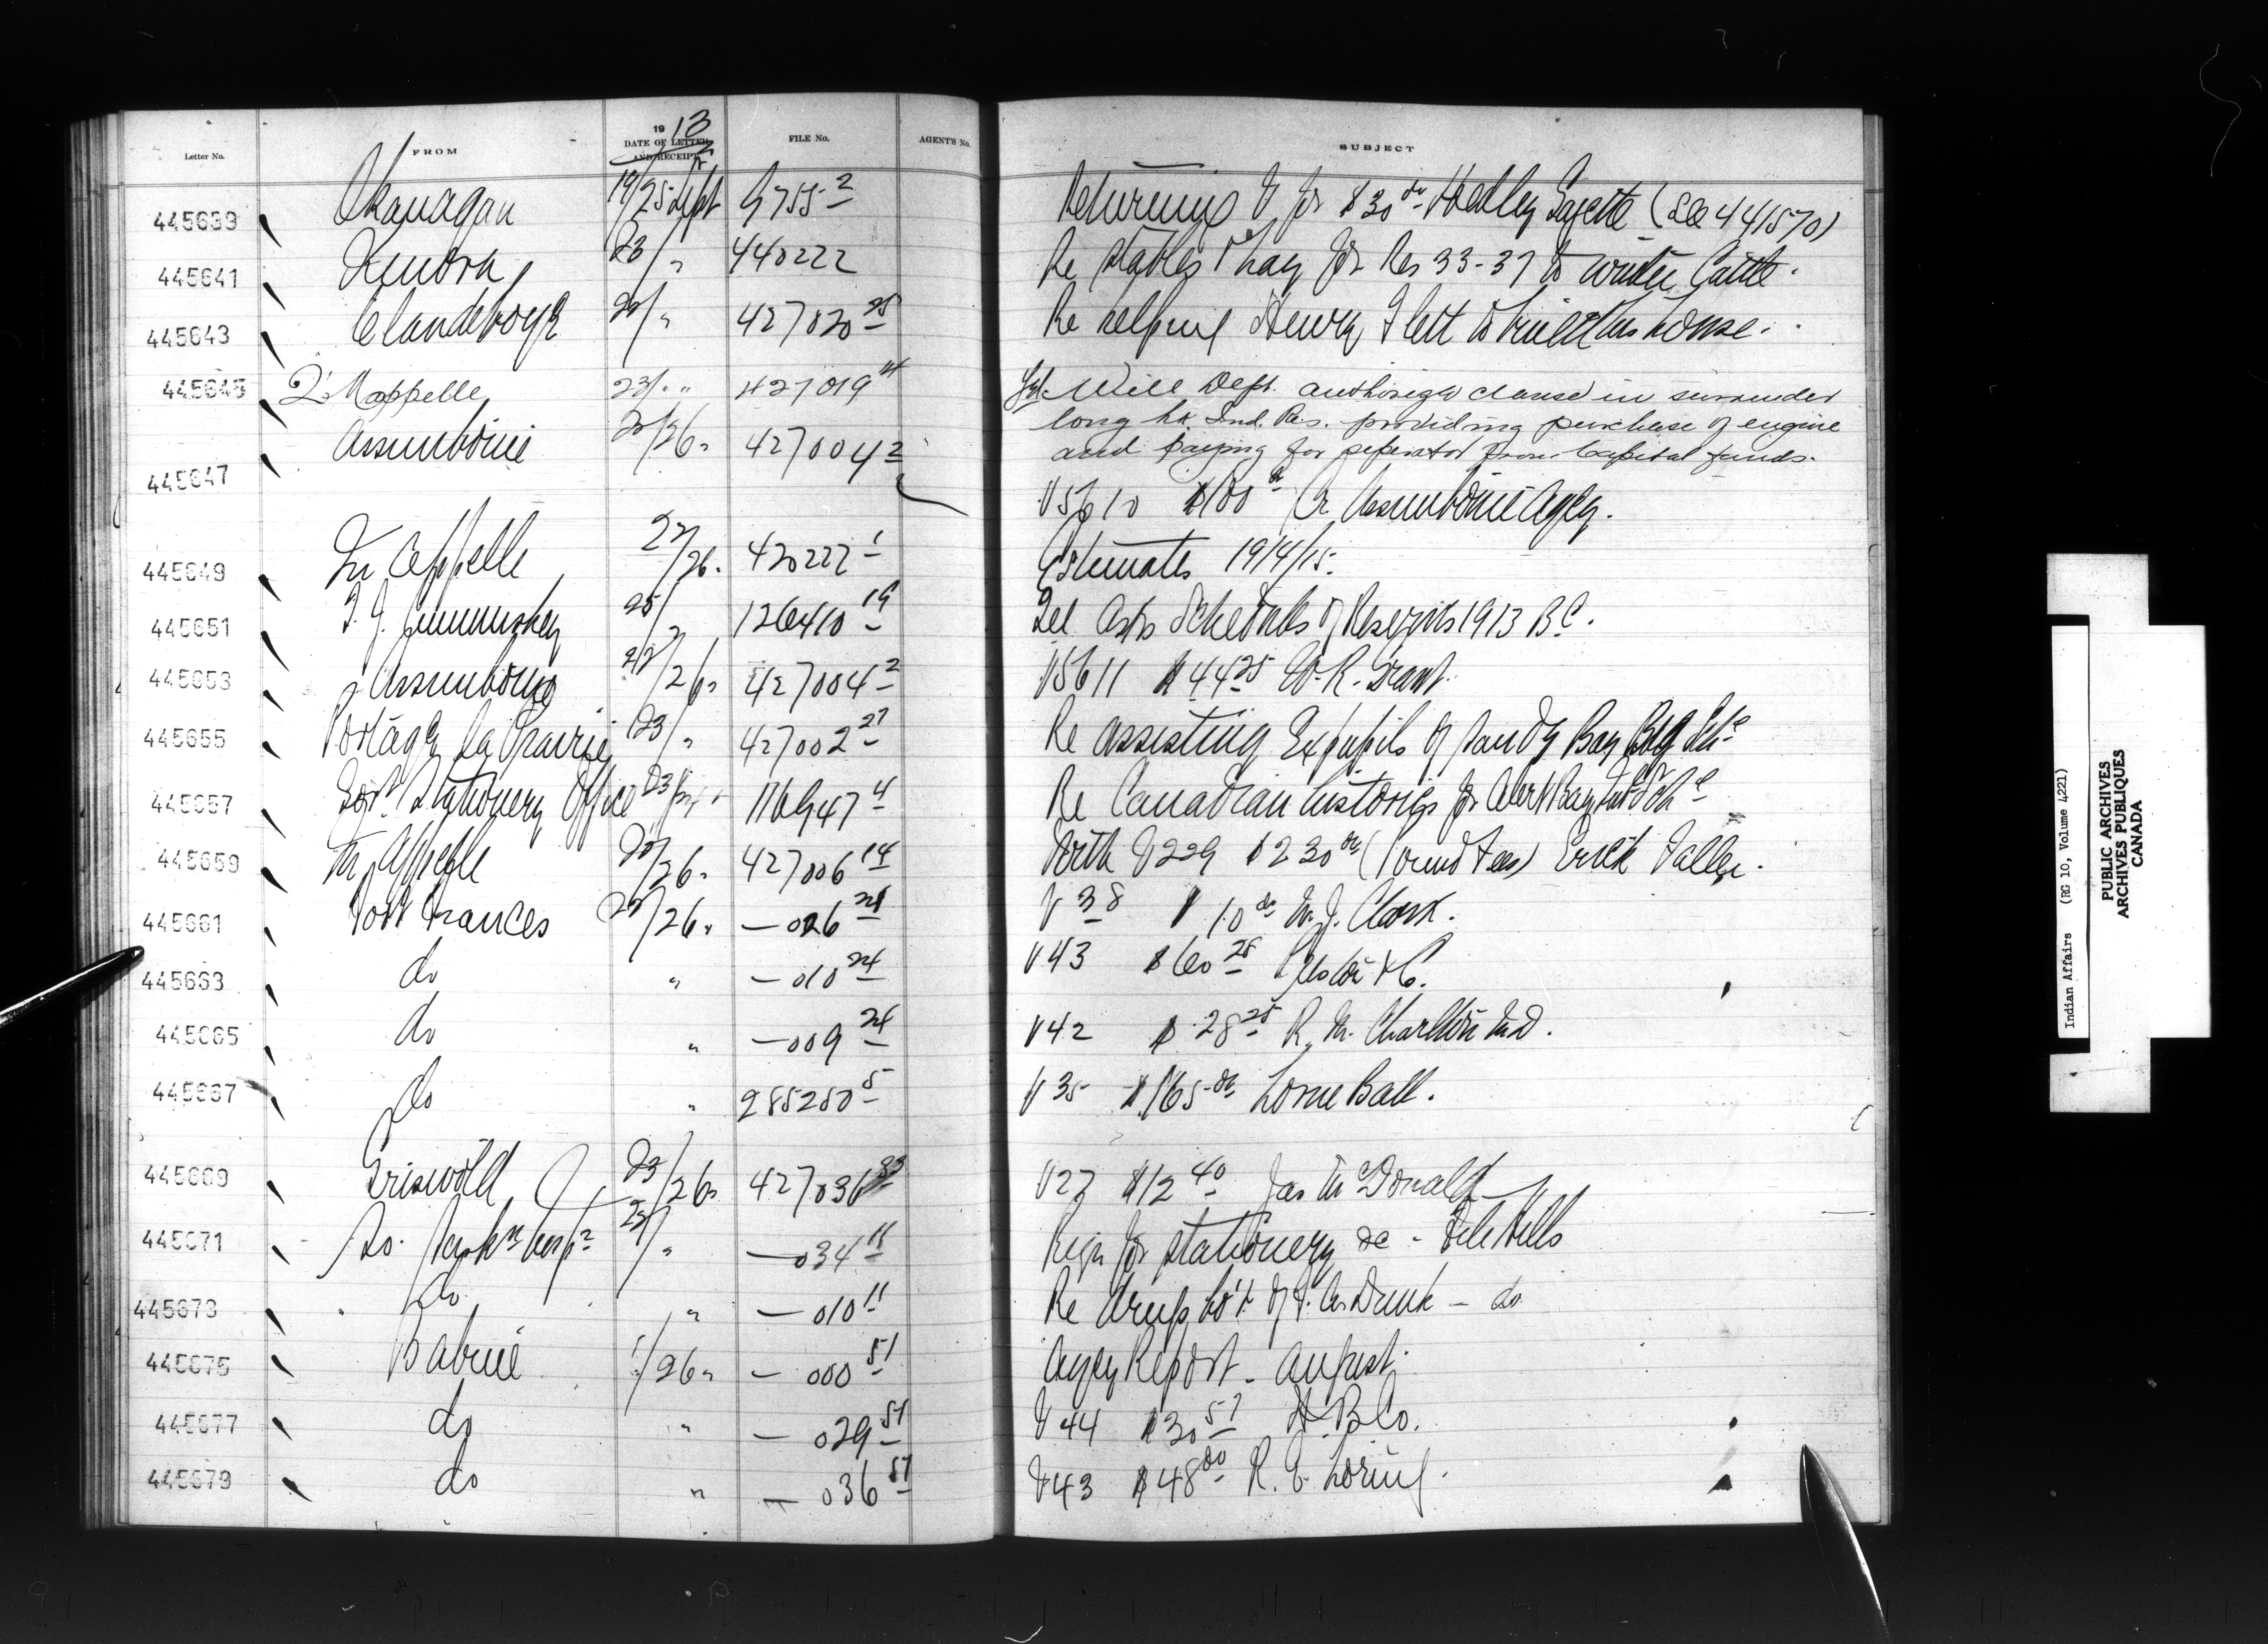 1913
Letter No. FROM DATE OF LETTER AND RECEIPT FILE No. AGENT'S No. SUBJECT
445639 Okanagan 19/25 Sept 9755-2 Returning V for $30 00 Hedley Gazette (See 441570)
445641 Kenora 23/ " 440222 Re stables & hay for Res 33-37 to winter Cattle.
445643 Clandeboye 427020 25 Re helping Henry Flett to build his house.
445645 Qu'Appelle 23/ " 427019 14 Tel. Will Dept. authorize clause in surrender
long lk. Ind. Res. providing purchase of engine
and paying for seperator from Capital funds.
445647 Assiniboine /26 " 427004 2 V5610 $100 Cr Assiniboine Agcy.
445649 Qu Appelle 22/26 " 420222 1 Estimates 1914/15.
445651 25/ " 126410 19 Tel Asks Schedules of Reserves 1913 B.C.
445653 Assiniboine 22/26 " 427004 2 V5611 $44 25 W. R. Grant.
445655 Portage La Prairie 23/ " 427002 27 Re assisting Expupils of Sandy Bay Bdg Sch.
445657 Govt Stationery Office 23/ 116947 4 Re Canadian histories for Alert Bay Ind Sch
445659 Qu Appelle /26 " 427006 14 With V229 $230 00 (Pound Fees)
445661 Fort Frances /26 " — 026 24 V 38 $10 00 W. J. Clark.
445663 do " — 010 24 V43 $60 25
445665 do " — 009 24 V42 $28 25 R. M. Charlton M.D.
445667 do " 285250 5 V35 $165 00 Lorne Ball.
445669 Griswold 23/26 " 427036 V27 $12 40 Jas McDonald
445671 So. Sask'n Insp 25/ " — 034 11 Reqn for stationery &c - File Hills
445673 do " — 010 11 Re drugs bo't of — do
445675 Babine /26 " — 000 51 Agcy Report - August.
445677 do " — 029 51 V44 $30 57 H. B. Co.
445679 do " — 036 51 V43 $48 00 R. E. Loring.
Indian Affairs (RG 10, Volume 4221)
PUBLIC ARCHIVES
ARCHIVES PUBLIQUES
CANADA